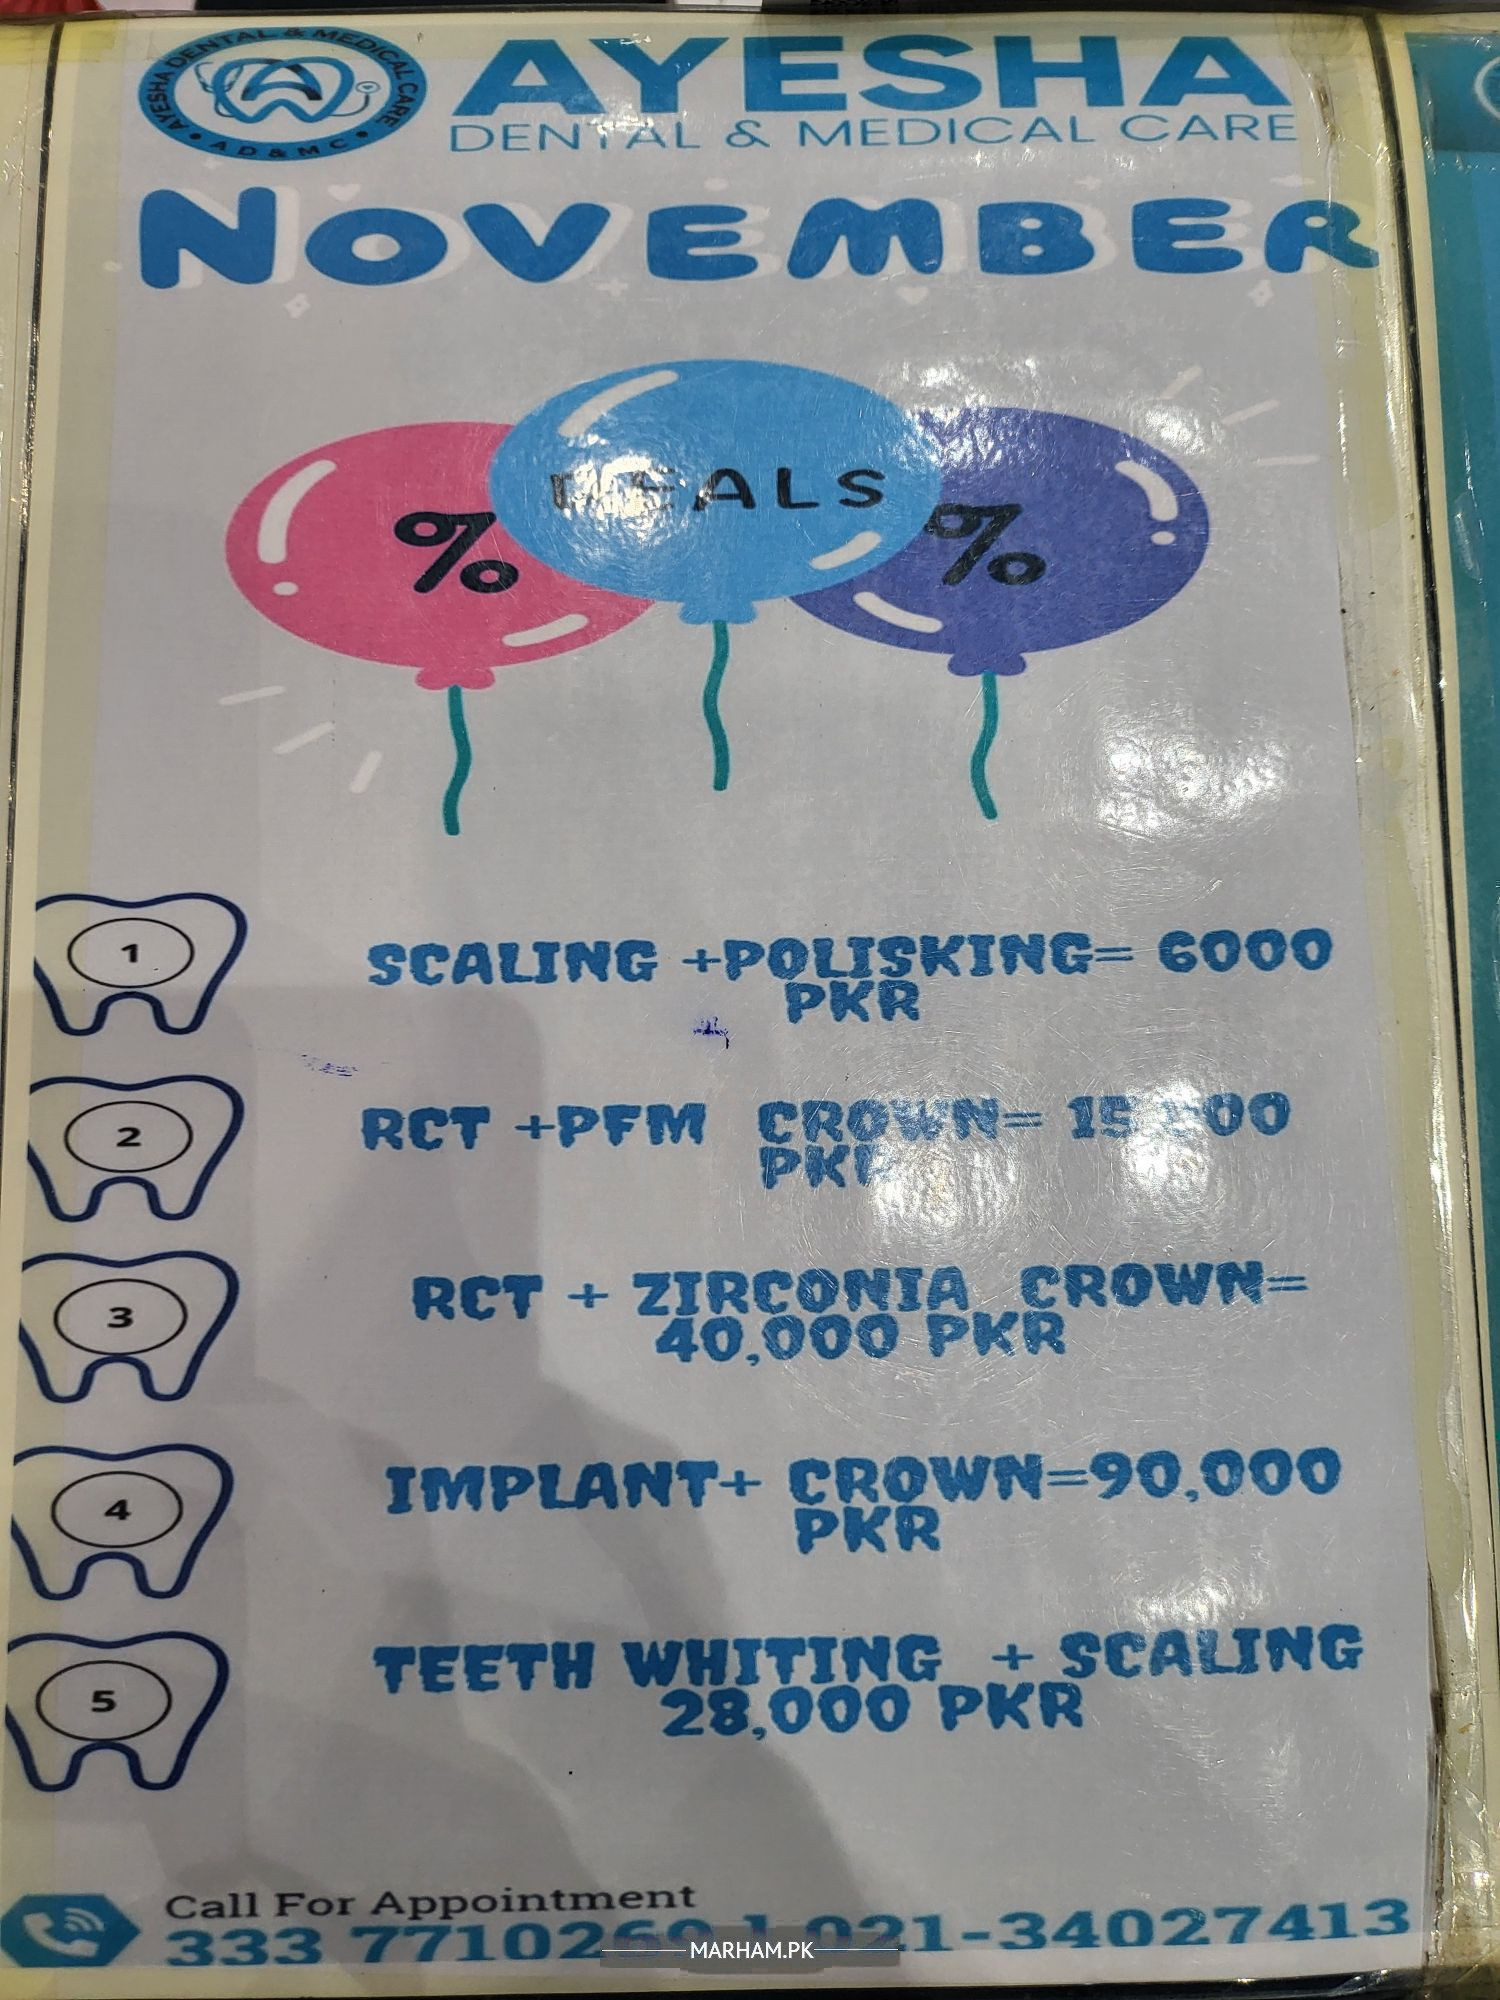 AYESHA DENTAL & MEDICAL CARE
AD & MC
AYESHA
DENTAL & MEDICAL CARE
NOVEMBER
DEALS
% %
1
SCALING +POLISKING= 6000
PKR
2
RCT +PFM CROWN=
PKR
3
RCT + ZIRCONIA CROWN=
40,000 PKR
4
IMPLANT+ CROWN=90,000
PKR
5
TEETH WHITING + SCALING
28,000 PKR
Call For Appointment
333 021-34027413
MARHAM.PK